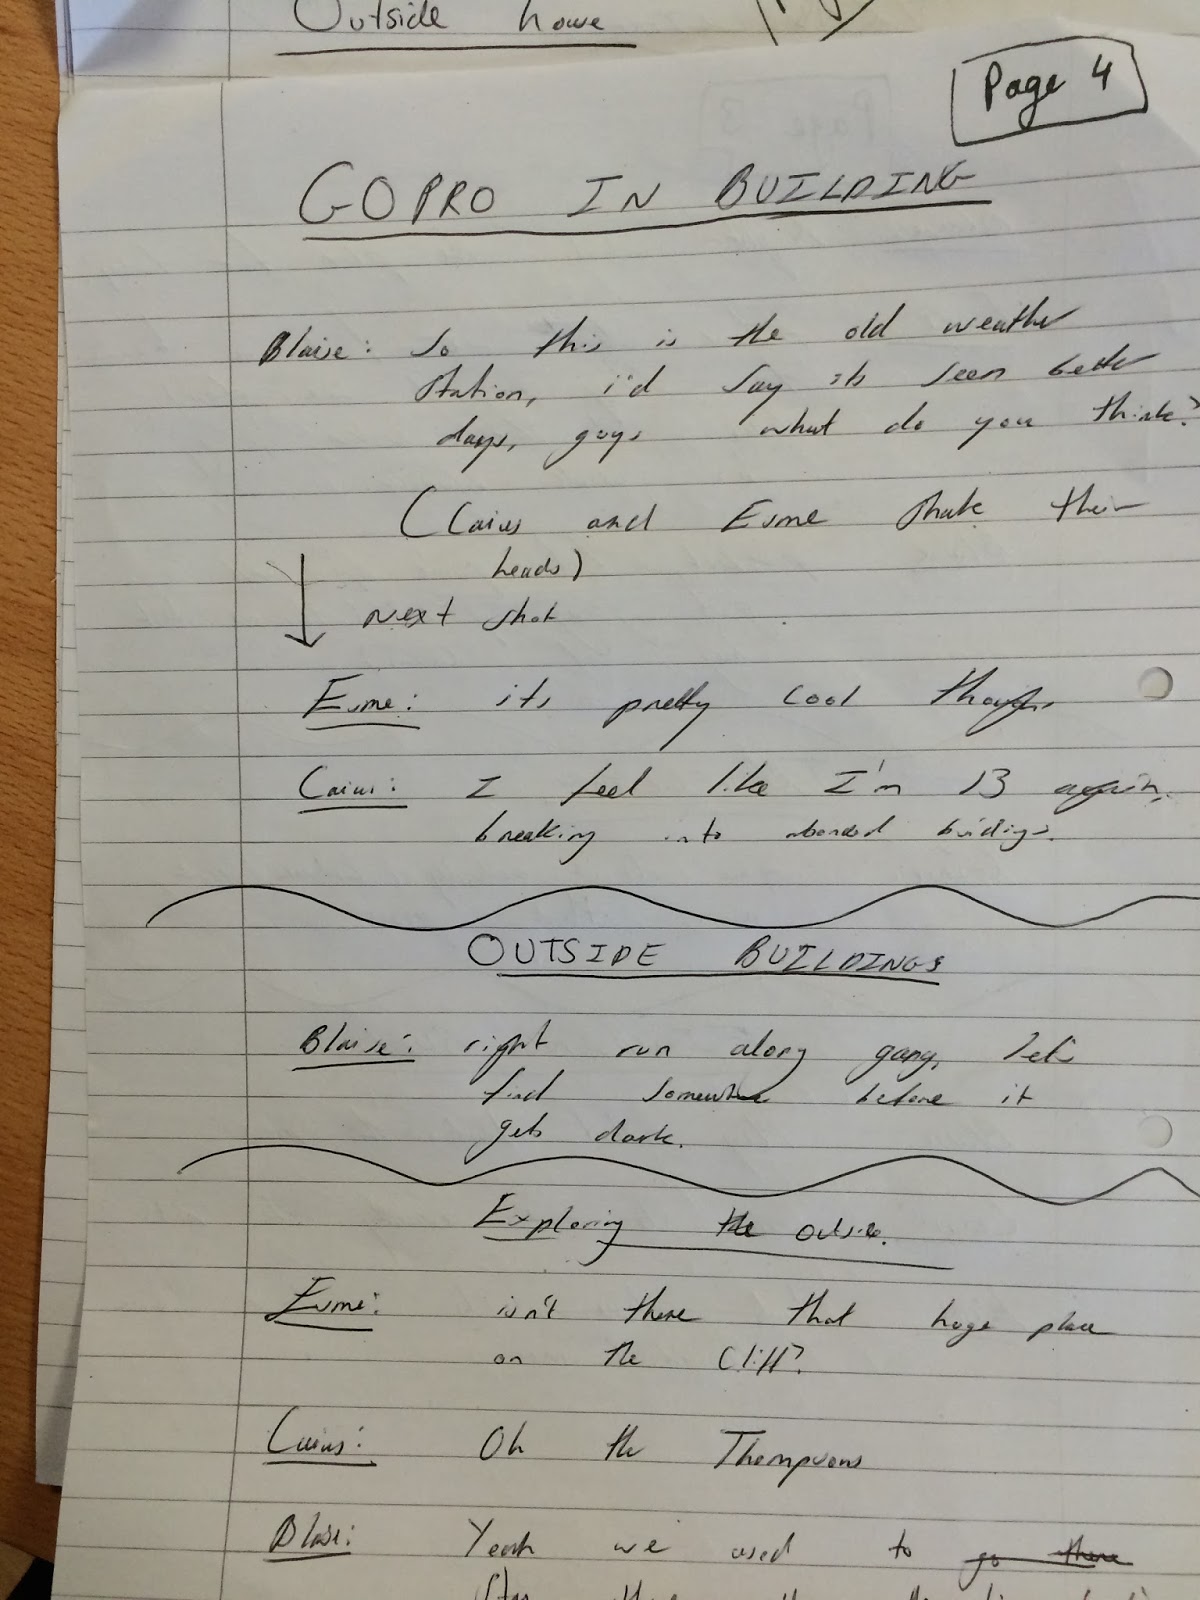 Outside house
Page 4
GOPRO IN BUILDING
Blaise: So this is the old weather
station, i'd say its seen better
days, guys what do you think?
(Caius and Esme shake their
heads)
Next shot
Esme: its pretty cool though.
Caius: I feel like I'm 13 again,
breaking into buidings.
OUTSIDE BUILDINGS
Blaise: right run along gang, let's
find somewhere before it
gets dark.
Exploring the outside.
Esme: isn't there that huge place
on the Cliff?
Caius: Oh the Thompsons
Blaise: Yeah we used to go there